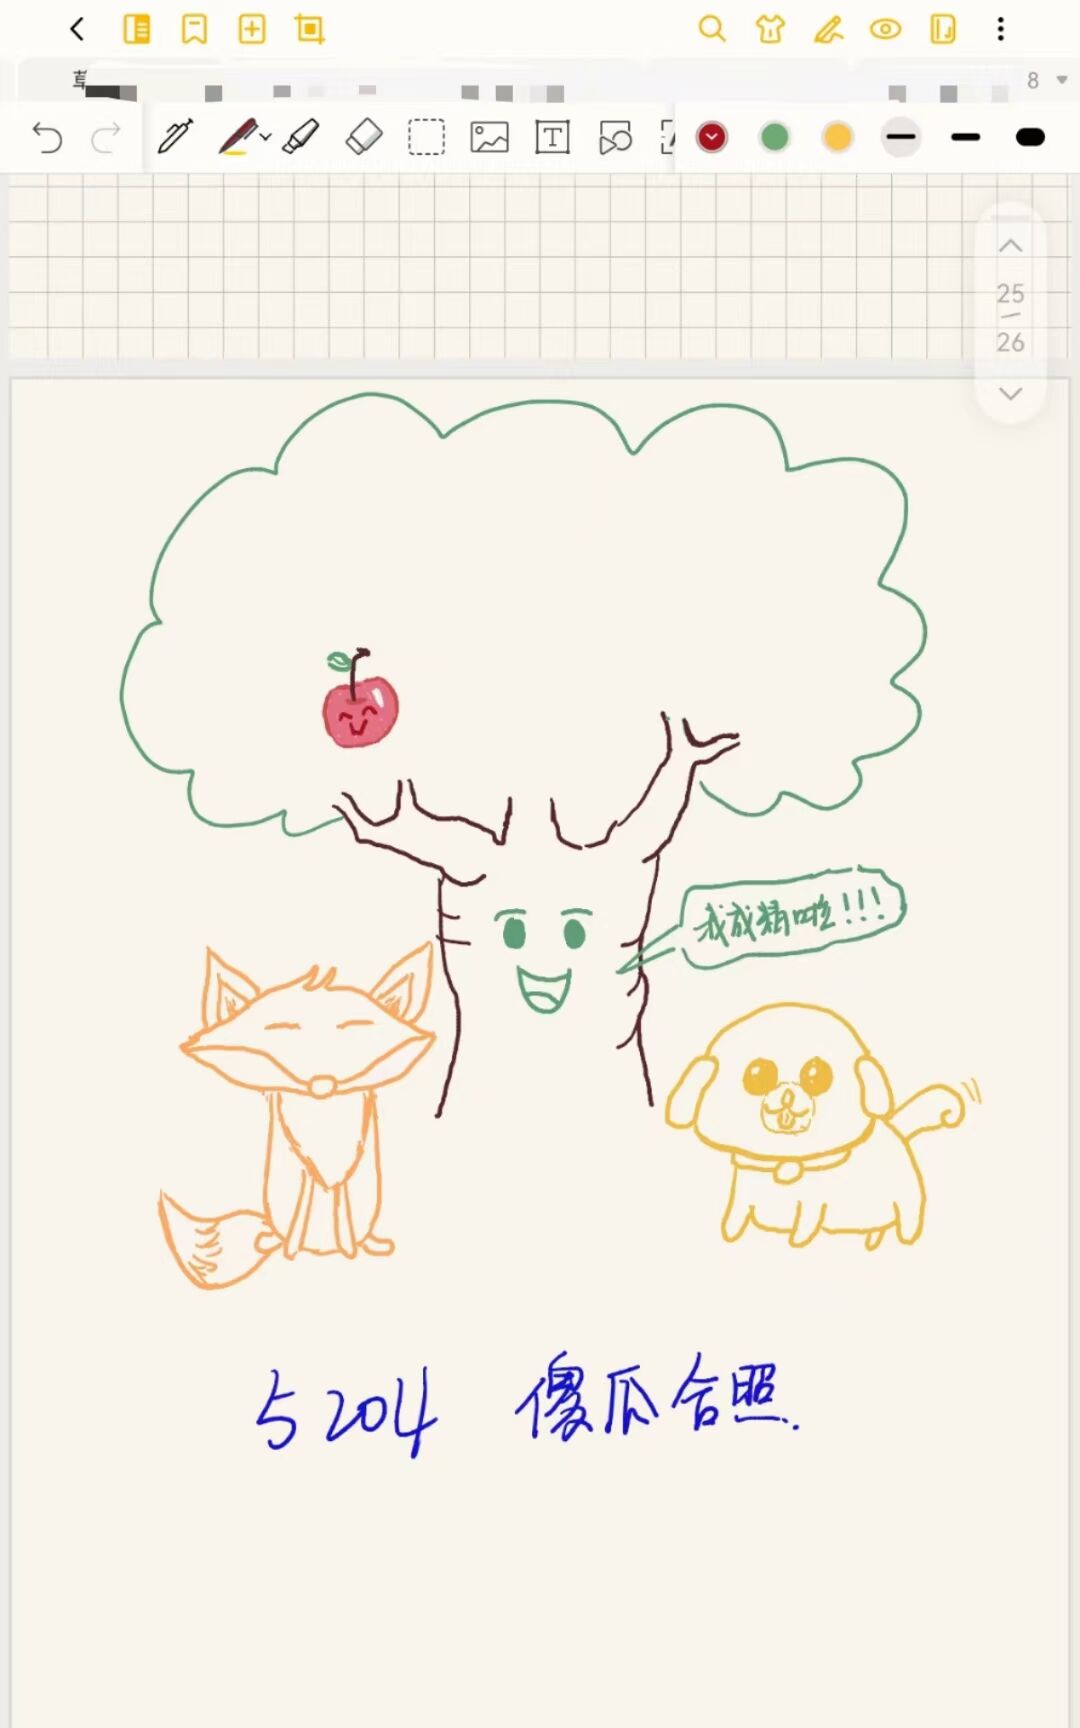 8
25
26
我成精啦!!!
5204 傻瓜合照.